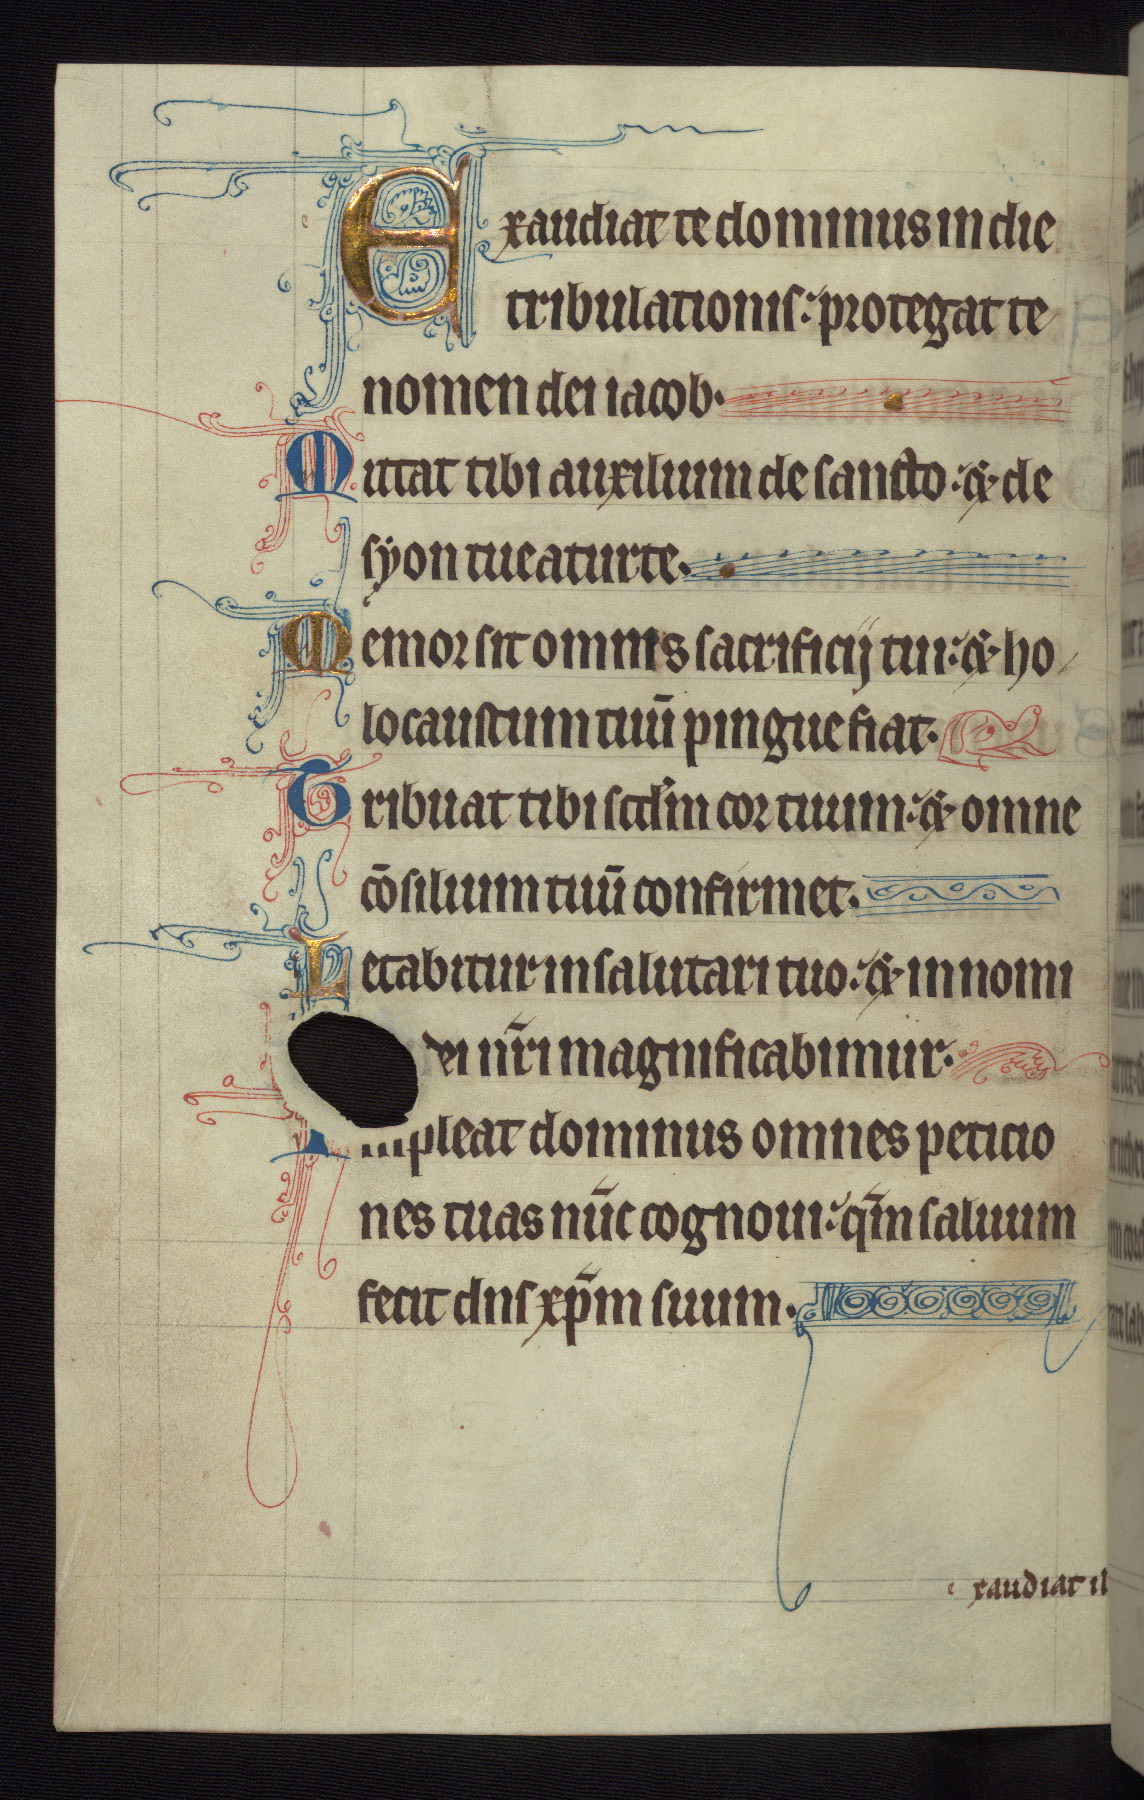 Exaudiat te dominus in die
tribulationis: protegat te
nomen dei iacob.
Mittat tibi auxilium de sancto: & de
syon tueatur te.
Memor sit omnis sacrificij tui: & ho
locaustum tuū pingue fiat.
Tribuat tibi scd̄m cor tuum: & omne
cōsilium tuū confirmet.
Letabitur in salutari tuo: & in nomi
dei nr̄i magnificabimur.
Impleat dominus omnes peticio
nes tuas nūc cognoui: qm̄ saluum
fecit dns xp̄m suum.
exaudiat il